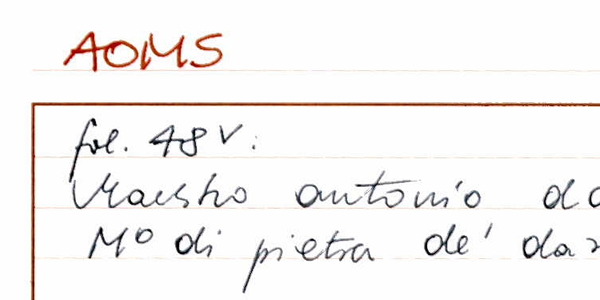 AOMS
fol. 48 v:
Maestro antonio
M° di pietra de'